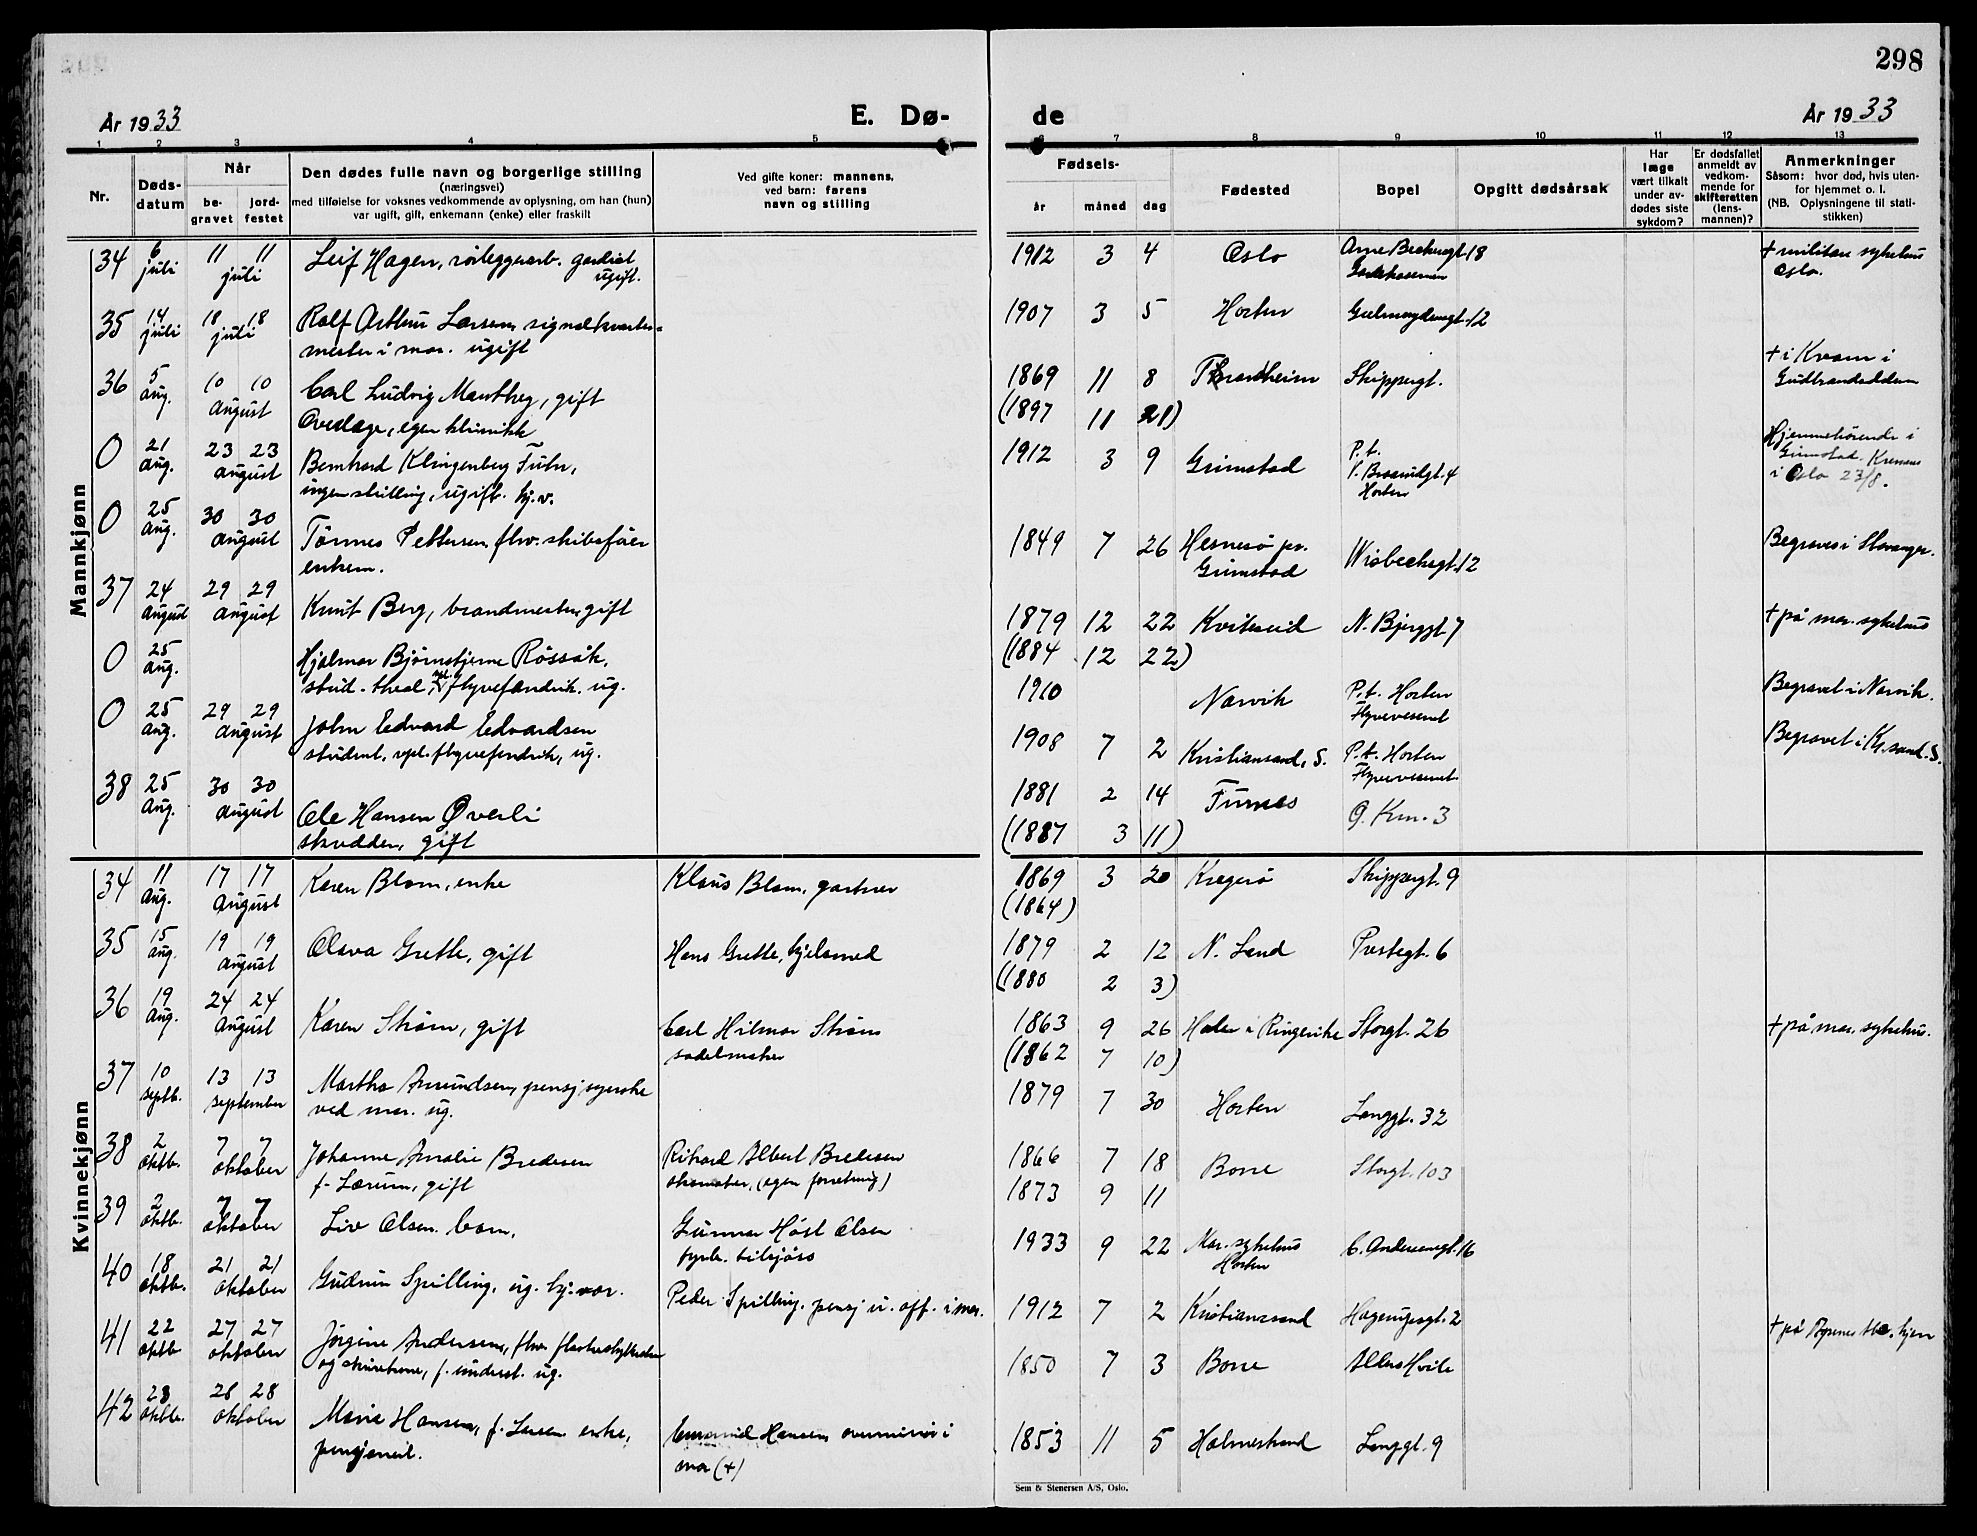 298
År 1933
E. Dø-
de
År 1933
1 2 3 4 5 6 7 8 9 10 11 12 13
Nr.
Døds-
datum
Når
be-
gravet
jord-
festet
Den dødes fulle navn og borgerlige stilling
(næringsvei)
med tilføielse for voksnes vedkommende av oplysning, om han (hun)
var ugift, gift, enkemann (enke) eller fraskilt
Ved gifte koner: mannens,
ved barn: farens
navn og stilling
Fødsels-
år måned dag
Fødested
Bopel
Opgitt dødsårsak
Har
læge
vært tilkalt
under av-
dødes siste
sykdom?
Er dødsfallet
anmeldt av
vedkom-
mende for
skifteretten
(lens-
mannen)?
Anmerkninger
Såsom: hvor død, hvis uten-
for hjemmet o. l.
(NB. Oplysningene til stati-
stikken)
Mannkjønn
34 6 juli 11 11 juli Leif Hagen, rörleggerarb. gardist ugift. 1912 3 4 Oslo 18 + militære sykehus Oslo.
35 14 juli 18 18 juli Rolf Arthur Larsen, signalkvarter-
mester i mar. ugift 1907 3 5 Horten 12
36 5 aug. 10 10 august Carl Ludvig Manthey, gift
Overlæge, egen klinikk 1869 11 8 Trondheim Skippergt. + i Kvam i
(1897 11 21) Gudbrandsdalen
0 21 aug. 23 23 august Bernhard Klingenberg Fuhr,
ingen stilling, ugift. hj.v. 1912 3 9 Grimstad P.t. 4 Horten Hjemmehörende i Grimstad. i Oslo 23/8.
0 25 aug. 30 30 august Tönnes Pettersen, fhv. skibsförer
enkem. 1849 7 26 Hesnesö pr. Grimstad Wisbechsgt. 12 Begraves i Stavanger.
37 24 august 29 29 august Knut Berg, brandmester, gift 1879 12 22 Kviteseid N. Bjerggt 7 + på mar. sykehus
(1884 12 22)
0 25 aug. Hjalmar Bjørnstjerne Røssåk,
stud. theol, vpl. flyvefendrik. ug. 1910 Narvik P.t. Horten Flyvevesenet Begravet i Narvik.
0 25 aug. 29 29 august John Edvard Edvardsen
student, vpl. flyvefendrik, ug. 1908 7 2 Kristiansand, S. P.t. Horten Flyvevesenet Begravet i Kr.sand. S.
38 25 aug. 30 30 august Ole Hansen Øverli
skredder, gift 1881 2 14 Furnes 3
(1887 3 11)
Kvinnekjønn
34 11 aug. 17 17 august Karen Blom, enke Klaus Blom, gartner 1869 3 20 Kragerö Skippergt. 9
(1864)
35 15 aug. 19 19 august Olava Grette, gift Hans Grette, kjelsmed 1879 2 12 N. Land Prestegt. 6
(1880 2 3)
36 19 aug. 24 24 august Karen Strøm, gift Carl Hilmar Strøm
sadelmaker 1863 9 26 Hole i Ringerike Storgt. 26 + på mar. sykehus.
(1862 7 10)
37 10 septb. 13 13 september Martha Amundsen, pensj syerske
ved mar. ug. 1879 7 30 Horten Langgt. 32
38 2 oktb. 7 7 oktober Johanne Amalie Bredesen
f. Lærum, gift Rikard Albert Bredesen
skomaker, (egen forretning) 1866 7 18 Borre Storgt. 103
1873 9 11
39 2 oktb. 7 7 oktober Liv Olsen. barn. Gunnar Höst Olsen
fyrb. tilsjöss 1933 9 22 Mar. sykehus Horten C. Andersensgt. 16
40 18 oktb. 21 21 oktober Gudrun Spilling, ug. hj. vær. Peder Spilling. pensj u. off. i mar. 1912 7 2 Kristianssand 2
41 22 oktb 27 27 oktober Jörgine Andersen, fhv.
og f. underst. ug. 1850 7 3 Borre Alders Hvile + på
42 23 oktb. 28 28 oktober Marie Hansen, f. Larsen enke,
pensjoneil. Hansen, overminör i
mar (+) 1853 11 5 Holmestrand Langgt. 9
Sem & Stenersen A/S, Oslo.